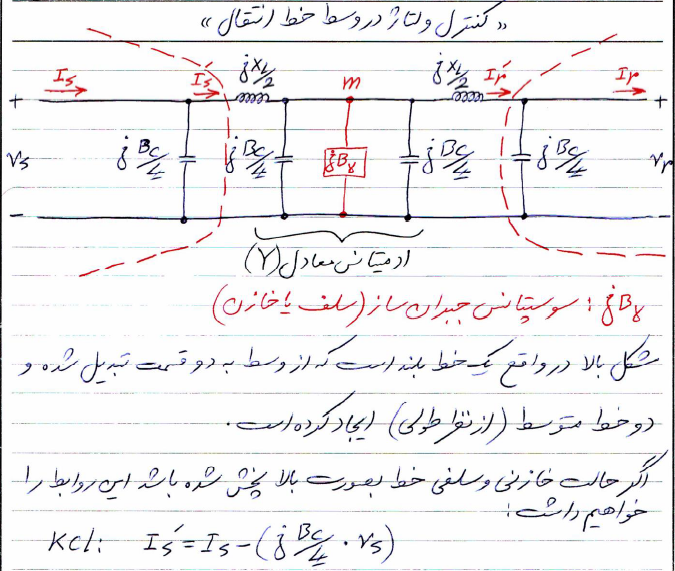 « کنترل ولتاژ در وسط خط انتقال »
Is Is′ jXL/2 m jXL/2 Ir′ Ir
+ +
Vs jBc/4 jBc/4 jBγ jBc/4 jBc/4 Vr
- -
ادمیتانس معادل (Y)
jBγ : سوسپتانس جبران ساز (سلف یا خازن)
شکل بالا در واقع یک خط بلند است که از وسط به دو قسمت تبدیل شده و
دو خط متوسط (از نظر طولی) ایجاد کرده است.
اگر حالت خازنی و سلفی خط بصورت بالا پخش شده باشد این روابط را
خواهیم داشت:
KCL: Is′ = Is - (jBc/4 · Vs)